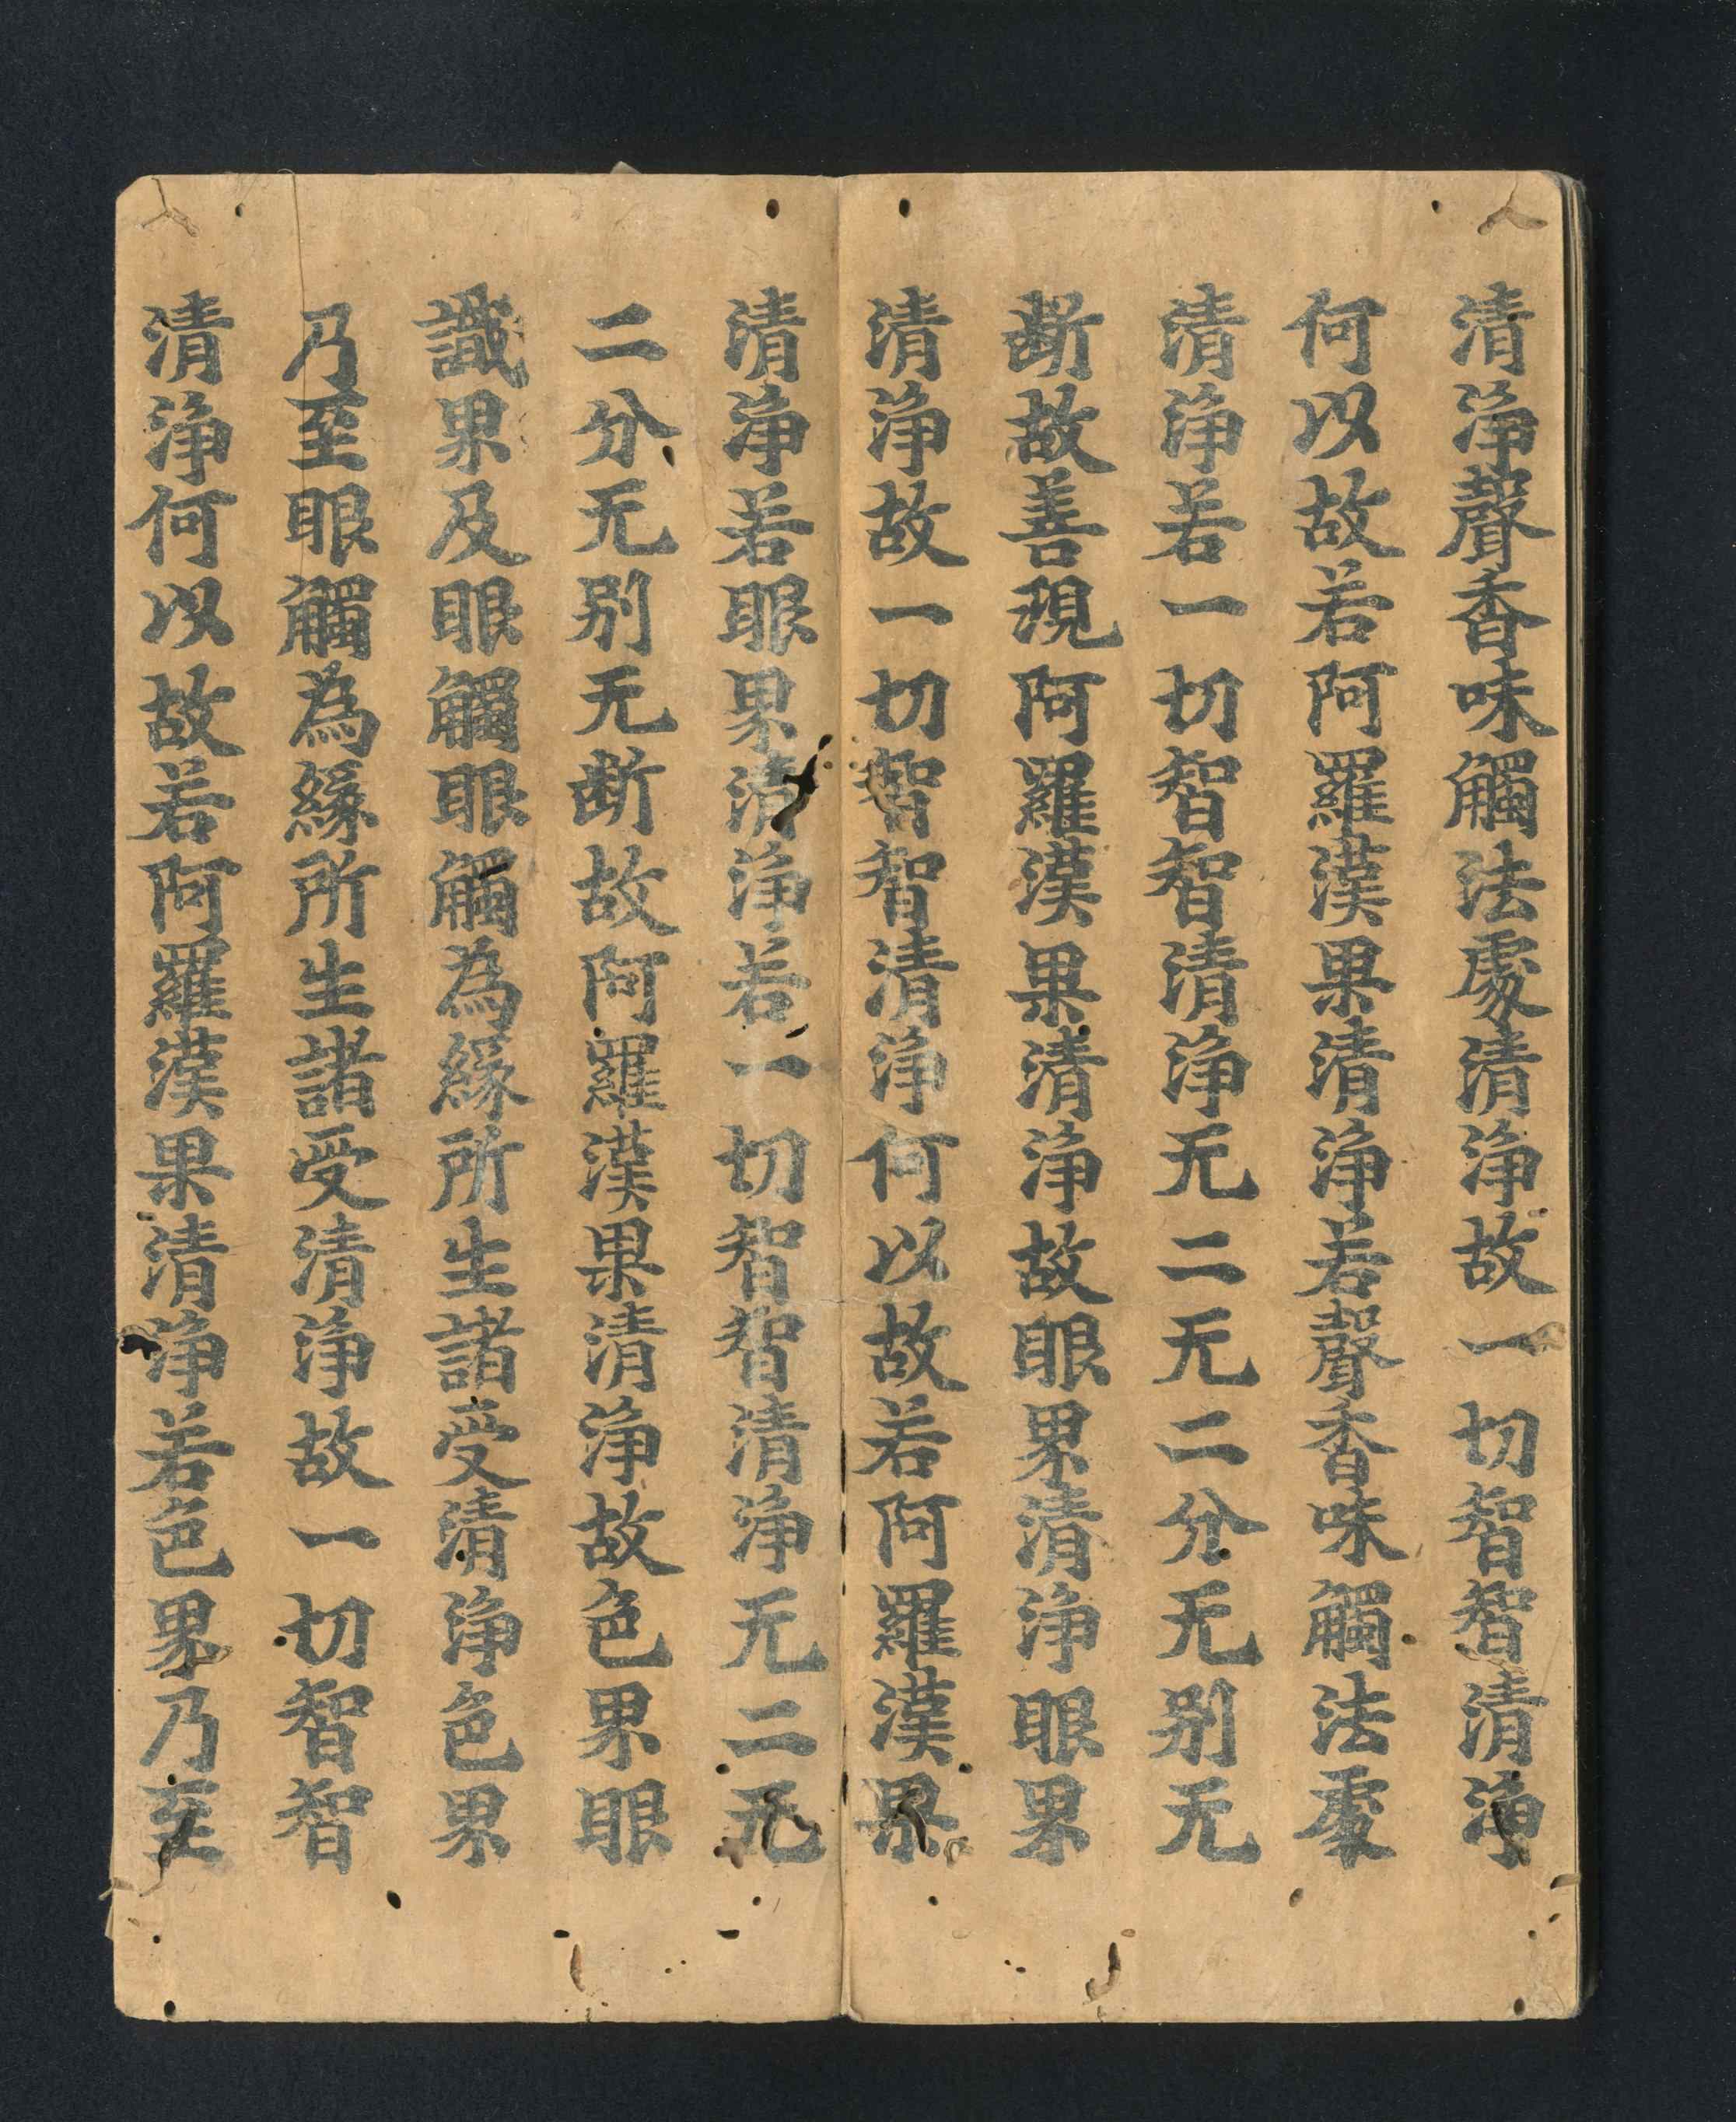 清淨聲香味觸法處清淨故一切智智清淨
何以故若阿羅漢果清淨若聲香味觸法處
清淨若一切智智清淨无二无二分无別无
斷故善現阿羅漢果清淨故眼界清淨眼界
清淨故一切智智清淨何以故若阿羅漢果
清淨若眼界清淨若一切智智清淨无二无
二分无別无斷故阿羅漢果清淨故色界眼
識界及眼觸眼觸為緣所生諸受清淨色界
乃至眼觸為緣所生諸受清淨故一切智智
清淨何以故若阿羅漢果清淨若色界乃至